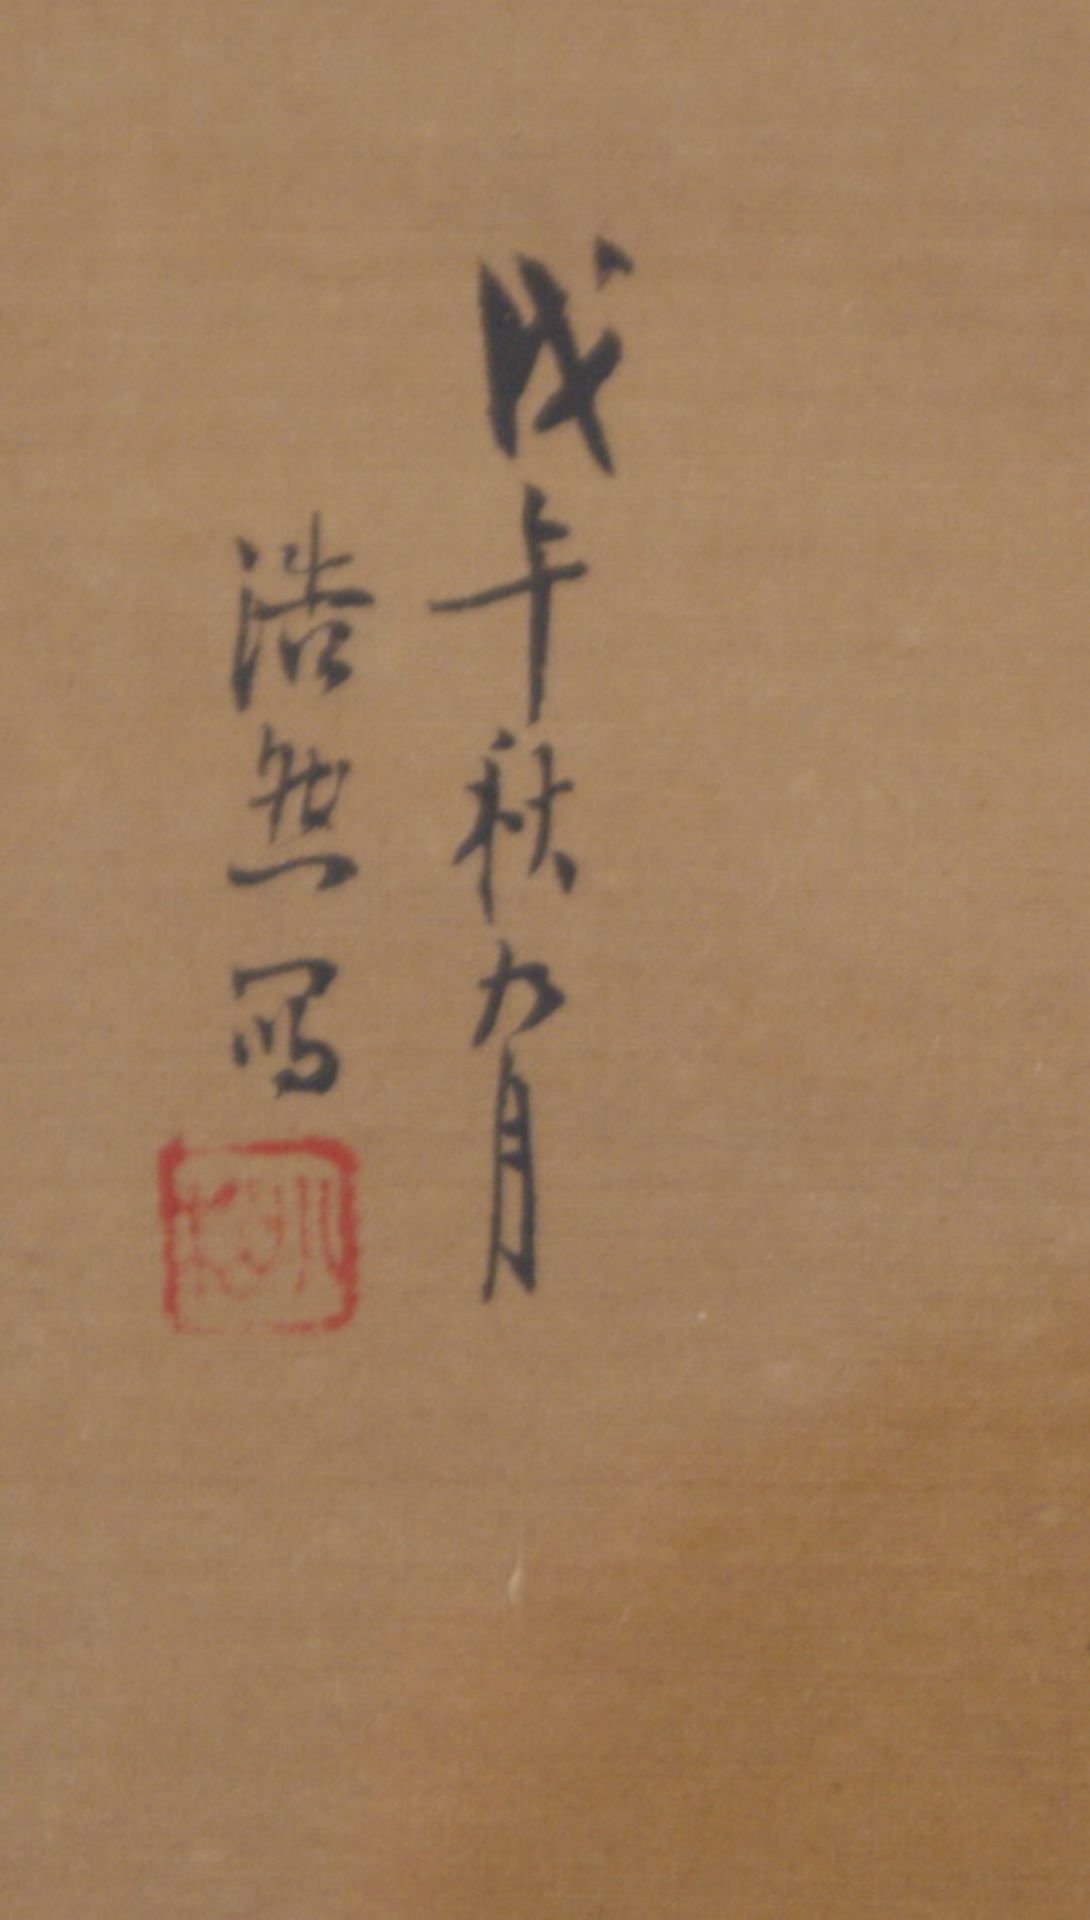 戊午秋九月
浩然写